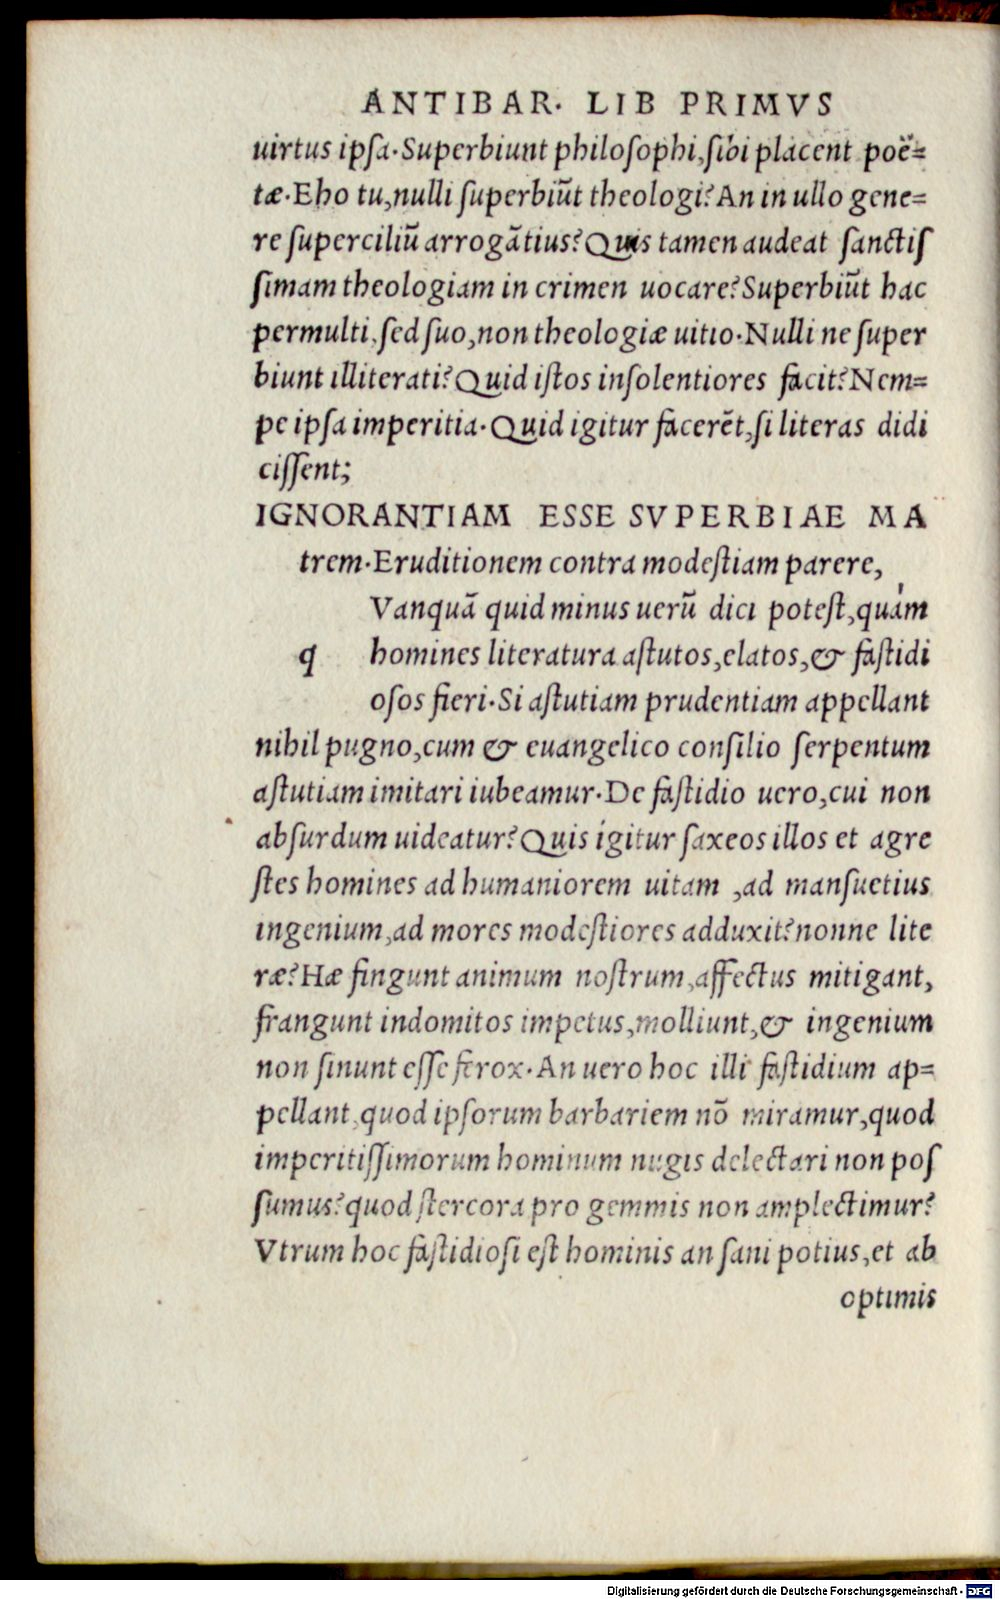 ANTIBAR. LIB PRIMVS
uirtus ipſa. Superbiunt philoſophi, ſibi placent poë=
tæ. Eho tu, nulli ſuperbiūt theologi? An in ullo gene=
re ſuperciliū arrogātius? Quis tamen audeat ſanctiſ
ſimam theologiam in crimen uocare? Superbiūt hac
permulti, ſed ſuo, non theologiæ uitio. Nulli ne ſuper
biunt illiterati? Quid iſtos inſolentiores facit? Nem=
pe ipſa imperitia. Quid igitur facerēt, ſi literas didi
ciſſent;
IGNORANTIAM ESSE SVPERBIAE MA
trem. Eruditionem contra modeſtiam parere,
Vanquā quid minus uerū dici poteſt, quàm
q homines literatura aſtutos, elatos, & faſtidi
oſos fieri. Si aſtutiam prudentiam appellant
nihil pugno, cum & euangelico conſilio ſerpentum
aſtutiam imitari iubeamur. De faſtidio uero, cui non
abſurdum uideatur? Quis igitur ſaxeos illos et agre
ſtes homines ad humaniorem uitam ,ad manſuetius
ingenium, ad mores modeſtiores adduxit? nonne lite
ræ? Hæ fingunt animum noſtrum, affectus mitigant,
frangunt indomitos impetus, molliunt, & ingenium
non ſinunt eſſe ferox. An uero hoc illi faſtidium ap=
pellant, quod ipſorum barbariem nō miramur, quod
imperitiſſimorum hominum nugis delectari non poſ
ſumus? quod ſtercora pro gemmis non amplectimur?
Vtrum hoc faſtidioſi eſt hominis an ſani potius, et ab
optimis
Digitalisierung gefördert durch die Deutsche Forschungsgemeinschaft - DFG